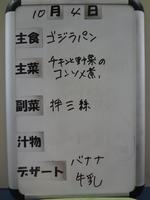 10月4日
主食 ゴジラパン
主菜 チキンと野菜の
コンソメ煮
副菜 拌三絲
汁物
デザート バナナ
牛乳